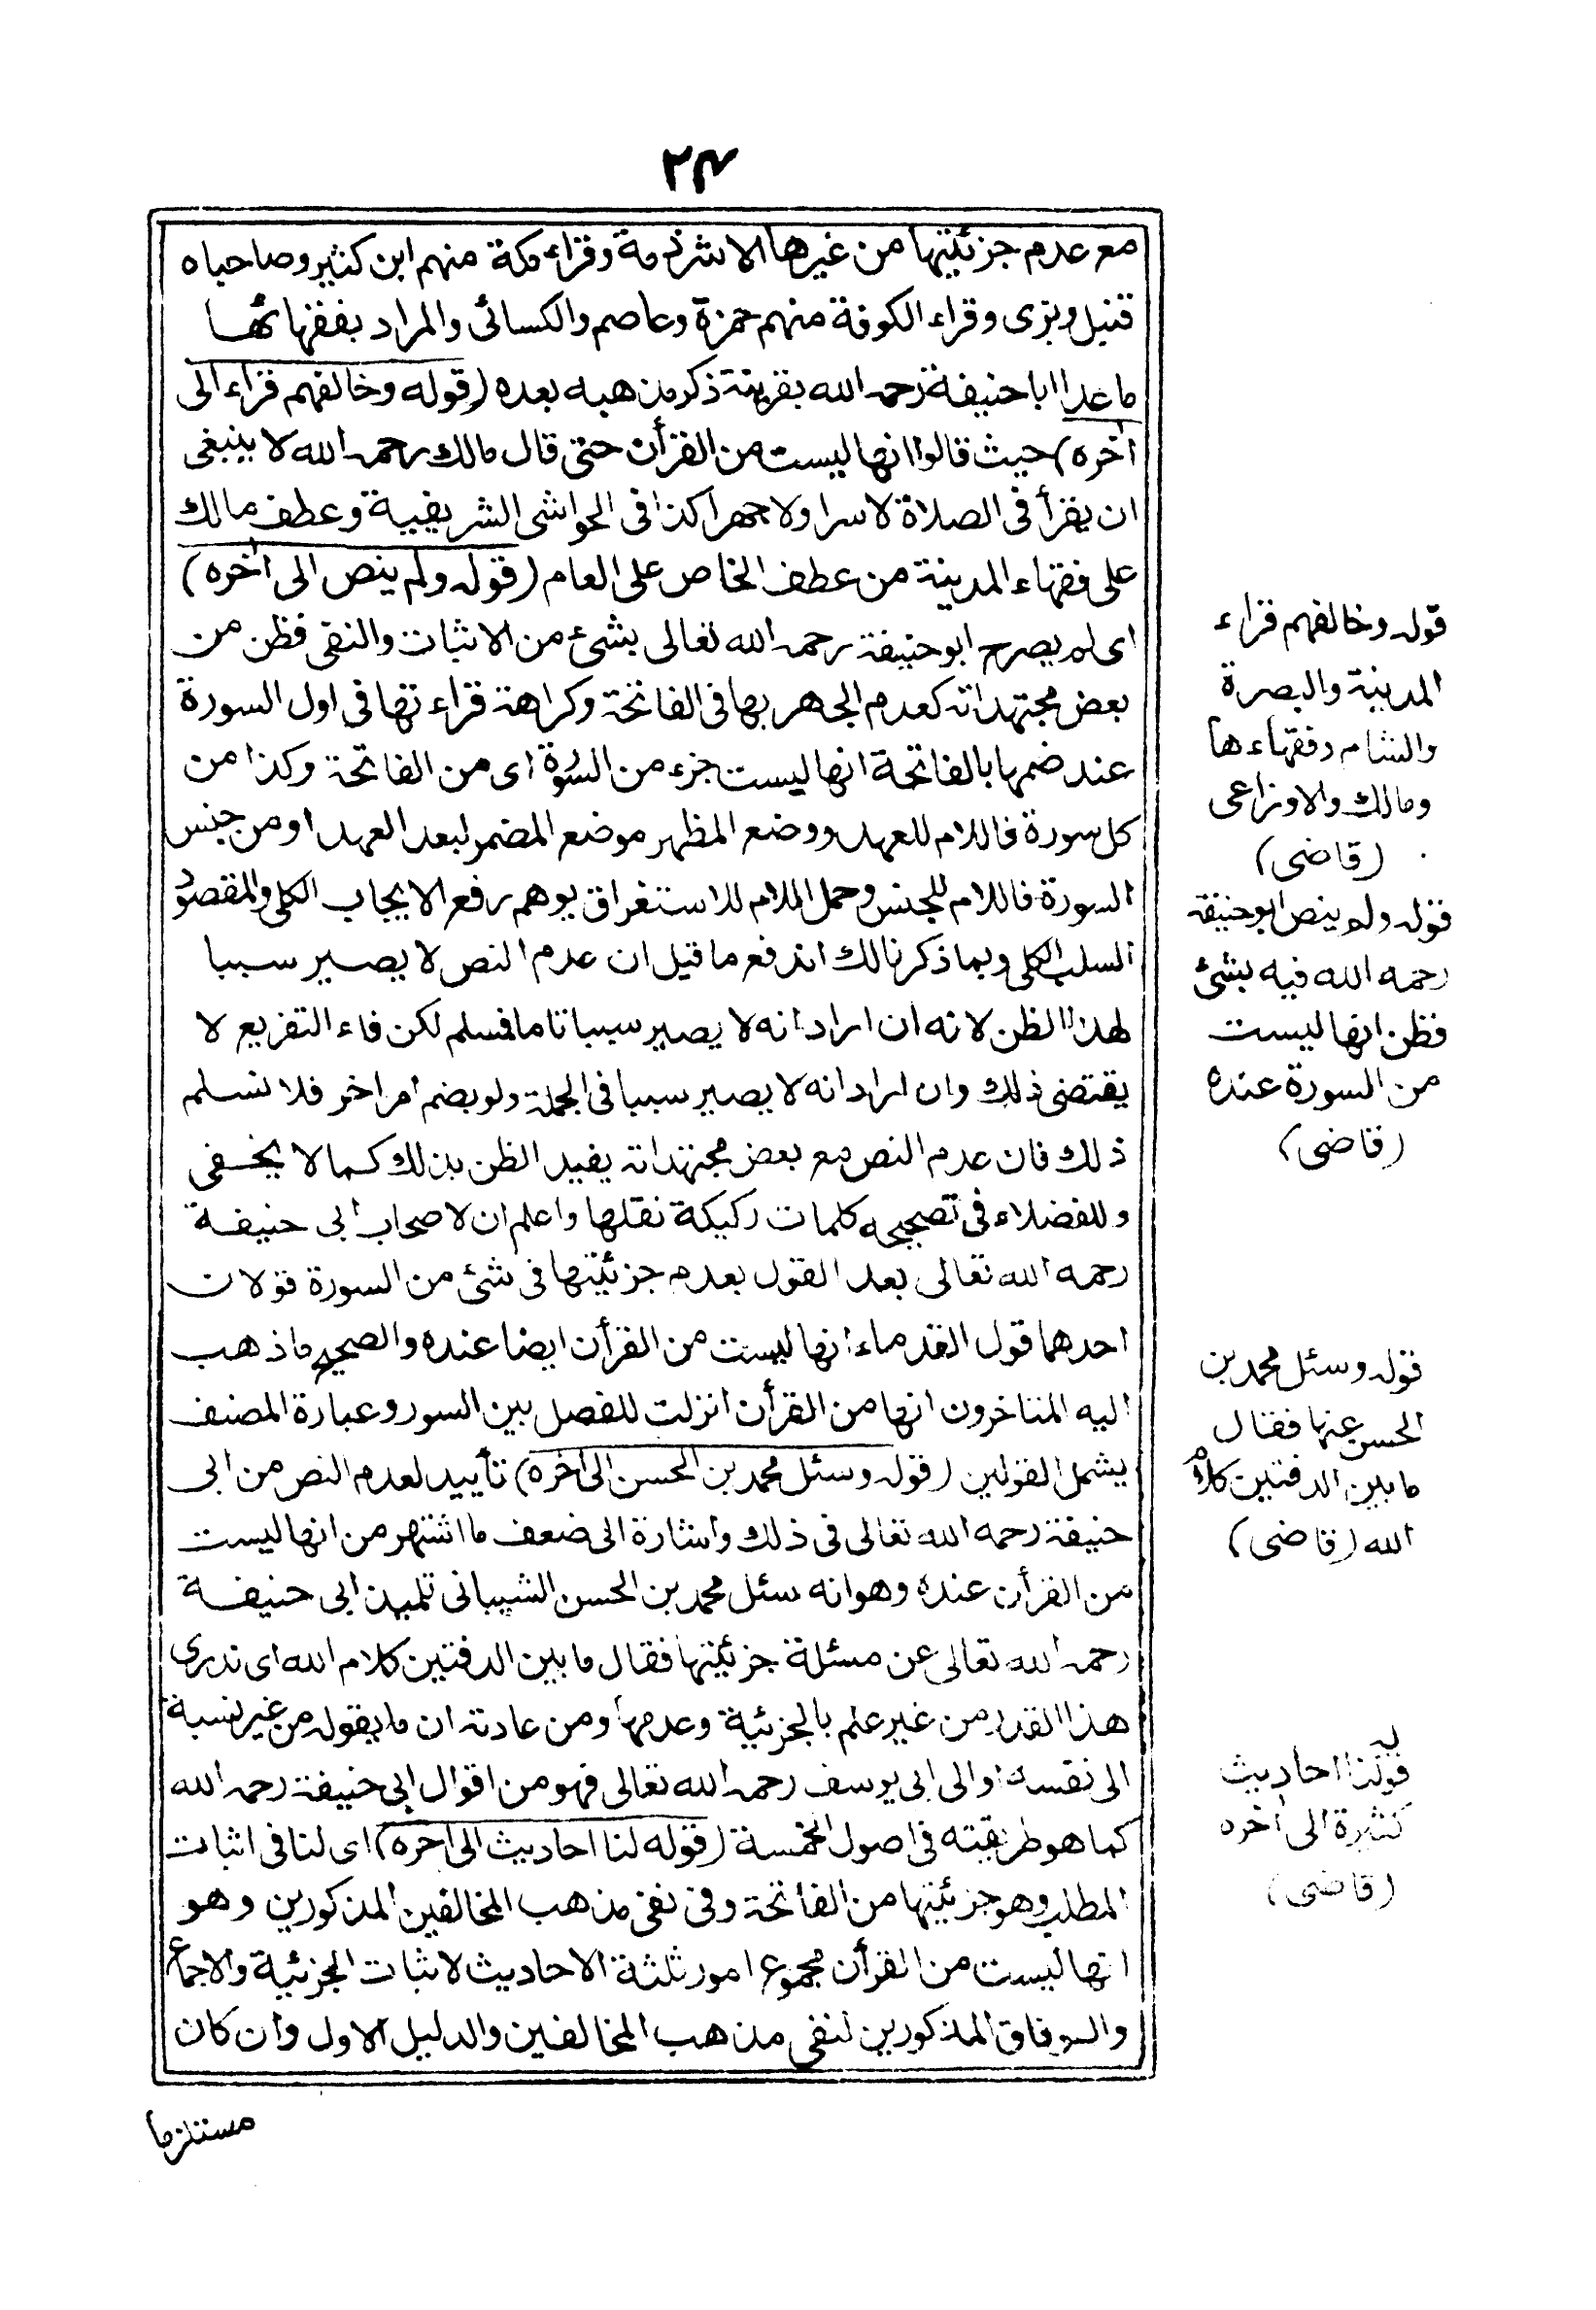 ٢٤
مع عدم جزئيتها من غيرها الا شرذمة وقراء مكة منهم ابن كثير وصاحباه
قنبل وبزى وقراء الكوفة منهم حمزة وعاصم والكسائى والمراد بفقهائها
ما عدا ابا حنيفة رحمه الله بقرينة ذكر مذهبه بعده (قوله وخالفهم قراء الى
آخره) حيث قالوا انها ليست من القرأن حتى قال مالك رحمه الله لا ينبغى
ان يقرأ فى الصلاة لا سرا ولا جهرا كذا فى الحواشى الشريفية وعطف مالك
على فقهاء المدينة من عطف الخاص على العام (قوله ولم ينص الى أخره)
اى لم يصرح ابو حنيفة رحمه الله تعالى بشئ من الاثبات والنفى فظن من
بعض مجتهداته كعدم الجهر بها فى الفاتحة وكراهة قراءتها فى اول السورة
عند ضمها بالفاتحة انها ليست جزء من السورة اى من الفاتحة وكذا من
كل سورة فاللام للعهد ووضع المظهر موضع المضمر لبعد العهد او من جنس
السورة فاللام للجنس وحمل اللام للاستغراق يوهم رفع الايجاب الكلى والمقصود
السلب الكلى وبما ذكرنا لك اندفع ما قيل ان عدم النص لا يصير سببا
لهذا الظن لانه ان اراد انه لا يصير سببا تاما فمسلم لكن فاء التفريع لا
يقتضى ذلك وان اراد انه لا يصير سببا فى الجملة ولو بضم امر اخر فلا نسلم
ذلك فان عدم النص مع بعض مجتهداته يفيد الظن بذلك كما لا يخفى
وللفضلاء فى تصحيحه كلمات ركيكة نقلها واعلم ان لاصحاب ابى حنيفة
رحمه الله تعالى بعد القول بعدم جزئيتها فى شئ من السورة قولان
احدهما قول القدماء انها ليست من القرأن ايضا عنده والصحيح ما ذهب
اليه المتاخرون انها من القرأن انزلت للفصل بين السور وعبارة المصنف
يشمل القولين (قوله وسئل محمد بن الحسن الى أخره) تأييد لعدم النص من ابى
حنيفة رحمه الله تعالى فى ذلك واشارة الى ضعف ما اشتهر من انها ليست
من القرأن عنده وهو انه سئل محمد بن الحسن الشيبانى تلميذ ابى حنيفة
رحمه الله تعالى عن مسئلة جزئيتها فقال ما بين الدفتين كلام الله اى ندرى
هذا القدر من غير علم بالجزئية وعدمها ومن عادته ان ما يقوله من غير نسبة
الى نفسه او الى ابى يوسف رحمه الله تعالى فهو من اقوال ابى حنيفة رحمه الله
كما هو طريقته فى اصول الخمسة (قوله لنا احاديث الى اخره) اى لنا فى اثبات
المطلب وهو جزئيتها من الفاتحة وفى نفى مذهب المخالفين المذكورين وهو
انها ليست من القرأن مجموع امور ثلثة الاحاديث لاثبات الجزئية والاجماع
والوفاق المذكورين لنفى مذهب المخالفين والدليل الاول وان كان
مستلزما
قوله وخالفهم قراء
المدينة والبصرة
والشام وفقهاءها
ومالك والاوزاعى
(قاضى)
قوله ولم ينص ابو حنيفة
رحمه الله فيه بشئ
فظن انها ليست
من السورة عنده
(قاضى)
قوله وسئل محمد بن
الحسن عنها فقال
ما بين الدفتين كلام
الله (قاضى)
قوله لنا احاديث
كثيرة الى أخره
(قاضى)